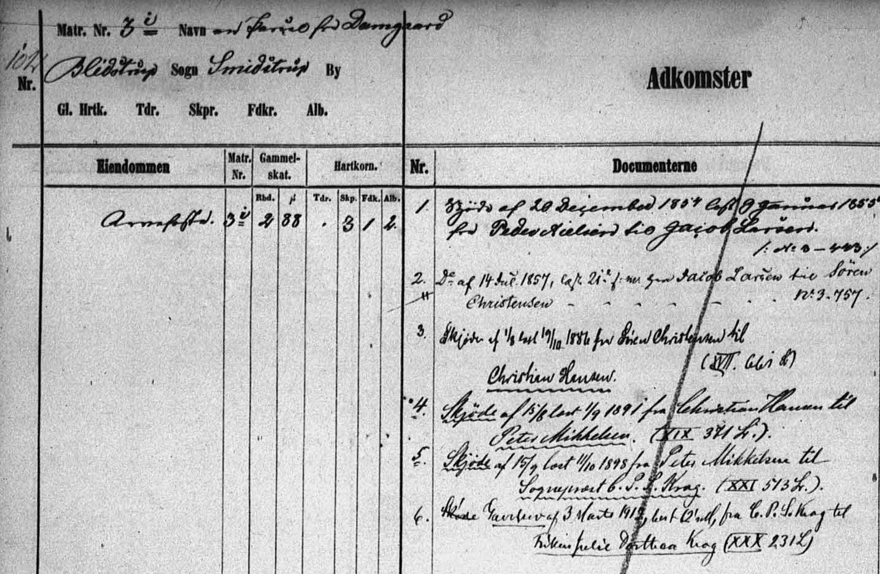 Matr. Nr. 3 i Navn en Parcel fra Damgaard
102
Nr.
Blidstrup Sogn Smidstrup By
Gl. Hrtk. Tdr. Skpr. Fdkr. Alb.
Adkomster
Eiendommen
Matr. Nr.
Gammel-skat.
Hartkorn.
Nr.
Documenterne
Rbd. β Tdr. Skp. Fdk. Alb.
3 i 2 88 . 3 1 2
1. Skjøde af 20 December 1854 læst 9 Januar 1855
fra Peder Nielsen til Jacob Larsen.
/: No 3 – 443 :/
2. Do af 14 Juli 1857, læst 21 fra Jacob Larsen til Søren
Christensen No 3-757.
3. Skjøde af 1/8 læst 19/10 1886 fra Søren Christensen til
Christian Hansen. (XVII. 661 L)
4. Skjøde af 15/8 læst 1/9 1891 fra Christian Hansen til
Peter Mikkelsen. (XIX 371 L.).
5. Skjøde af 15/9 læst 11/10 1898 fra Peter Mikkelsen til
Sognepræst C. P. S. Krag. (XXI 513 L.).
6. Skøde Gavebrev af 3 Marts 1912, læst fra C. P. S. Krag til
Frøken Dorthea Krag (XXX 231 L)